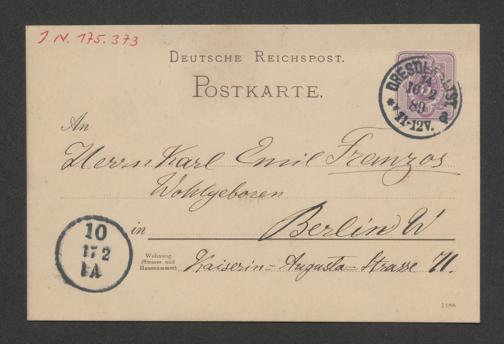 J.N. 175.373
DEUTSCHE REICHSPOST.
POSTKARTE.
DRESDEN-ALTST.
14
16 2
89
*11-12V. a
An
Herrn Karl Emil Franzos
Wohlgeboren
in Berlin W
Wohnung
(Strasse und
Hausnummer)
Kaiserin-Augusta-Strasse 71.
10
17 2
1188